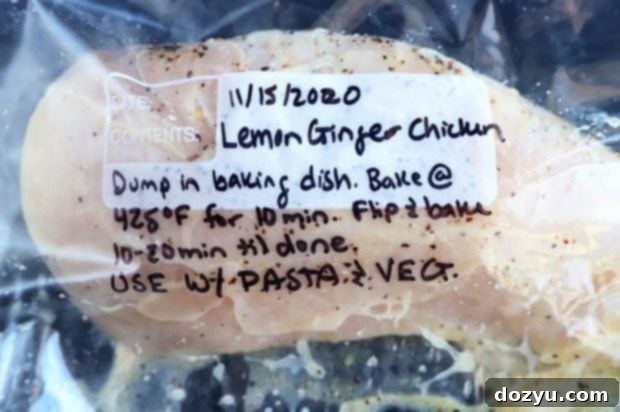 DATE:
11/15/2020
CONTENTS:
Lemon Ginger Chicken
Dump in baking dish. Bake @
425°F for 10 min. Flip & bake
10-20min til done.
USE W/ PASTA & VEG.
dozyu.com